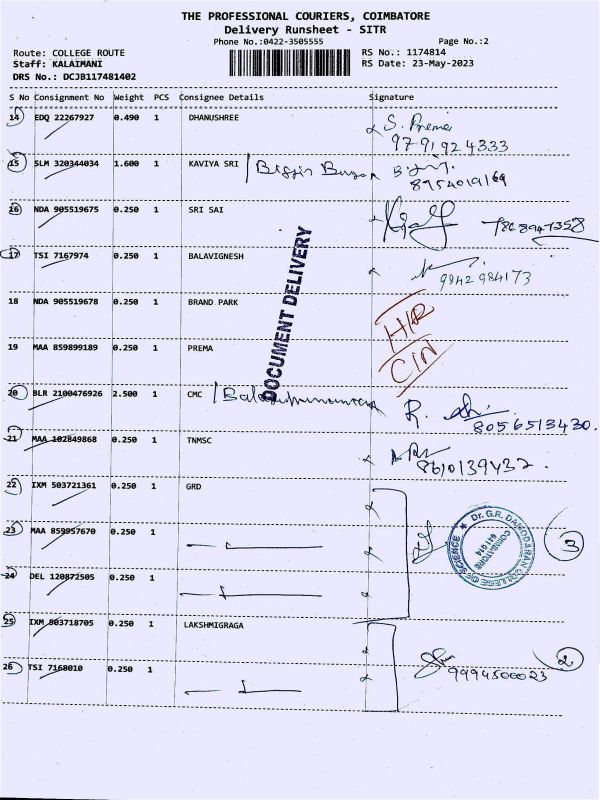 THE PROFESSIONAL COURIERS, COIMBATORE
Delivery Runsheet - SITR
Phone No.:0422-3505555 Page No.:2
Route: COLLEGE ROUTE RS No.: 1174814
Staff: KALAIMANI RS Date: 23-May-2023
DRS No.: DCJB117481402
S No Consignment No Weight PCS Consignee Details Signature
14 EDQ 22267927 0.490 1 DHANUSHREE S. Prema
9791924333
15 SLM 320344034 1.600 1 KAVIYA SRI
8954019169
16 NDA 905519675 0.250 1 SRI SAI 7868947358
17 TSI 7167974 0.250 1 BALAVIGNESH
9842984173
DOCUMENT DELIVERY
18 NDA 905519678 0.250 1 BRAND PARK
19 MAA 859899189 0.250 1 PREMA
20 BLR 2100476926 2.500 1 CMC R.
8056513430.
21 MAA 102849868 0.250 1 TNMSC
8610139432.
22 IXM 503721361 0.250 1 GRD
23 MAA 859957670 0.250 1
Dr. G.R. DAMODARAN COLLEGE OF SCIENCE
COIMBATORE
641 014
3
24 DEL 120872505 0.250 1
25 IXM 503718705 0.250 1 LAKSHMIGRAGA
2
26 TSI 7168010 0.250 1 9994500023